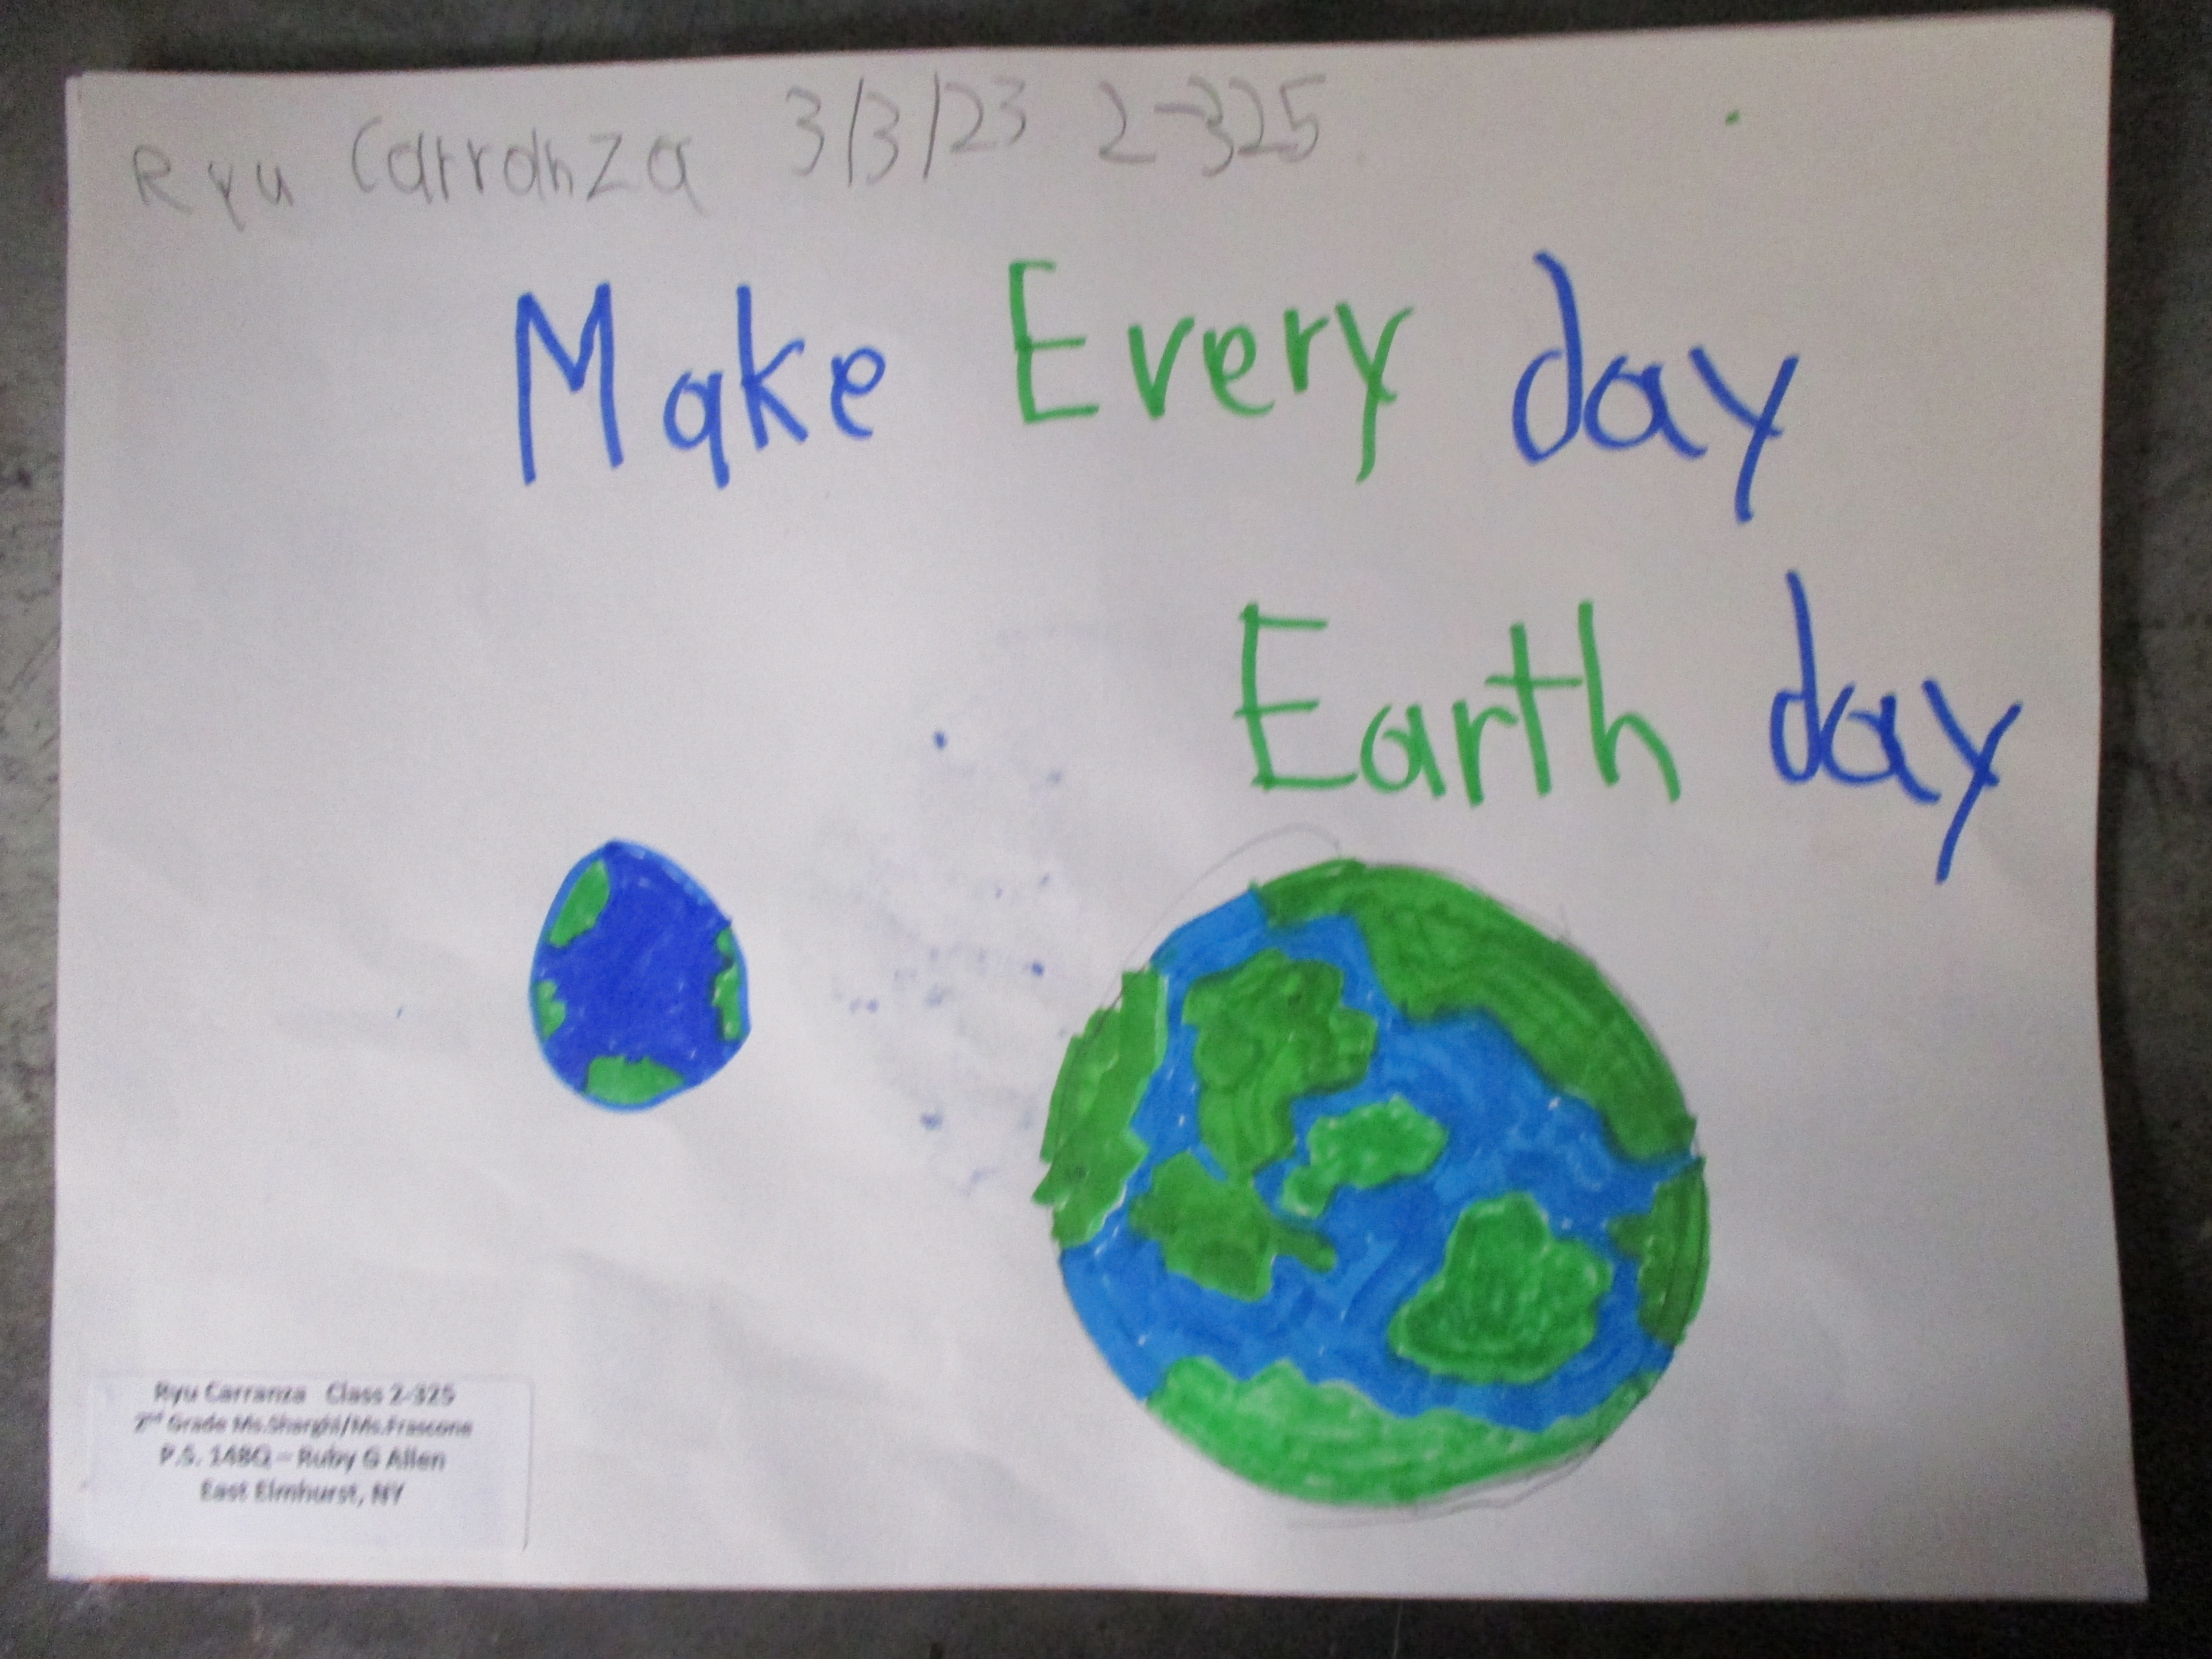 Ryu Carranza 3/3/23 2-325
Make Every day
Earth day
Ryu Carranza Class 2-325
2nd Grade Ms.Sharghi/Ms.Frascone
P.S. 148Q – Ruby G Allen
East Elmhurst, NY